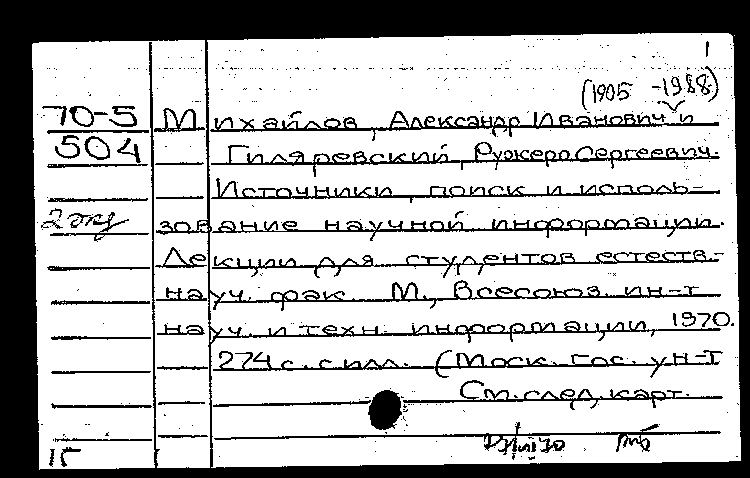 1
(1905 -1988)
70-5 Михайлов, Александр Иванович и
504 Гиляревский, Руджеро Сергеевич.
Источники, поиск и исполь-
2 экз зование научной информации.
Лекции для студентов естеств.-
науч. фак. М., Всесоюз. ин-т
науч. и техн. информации, 1970.
274 с. с илл. (Моск. гос. ун-т
См. след. карт.
15